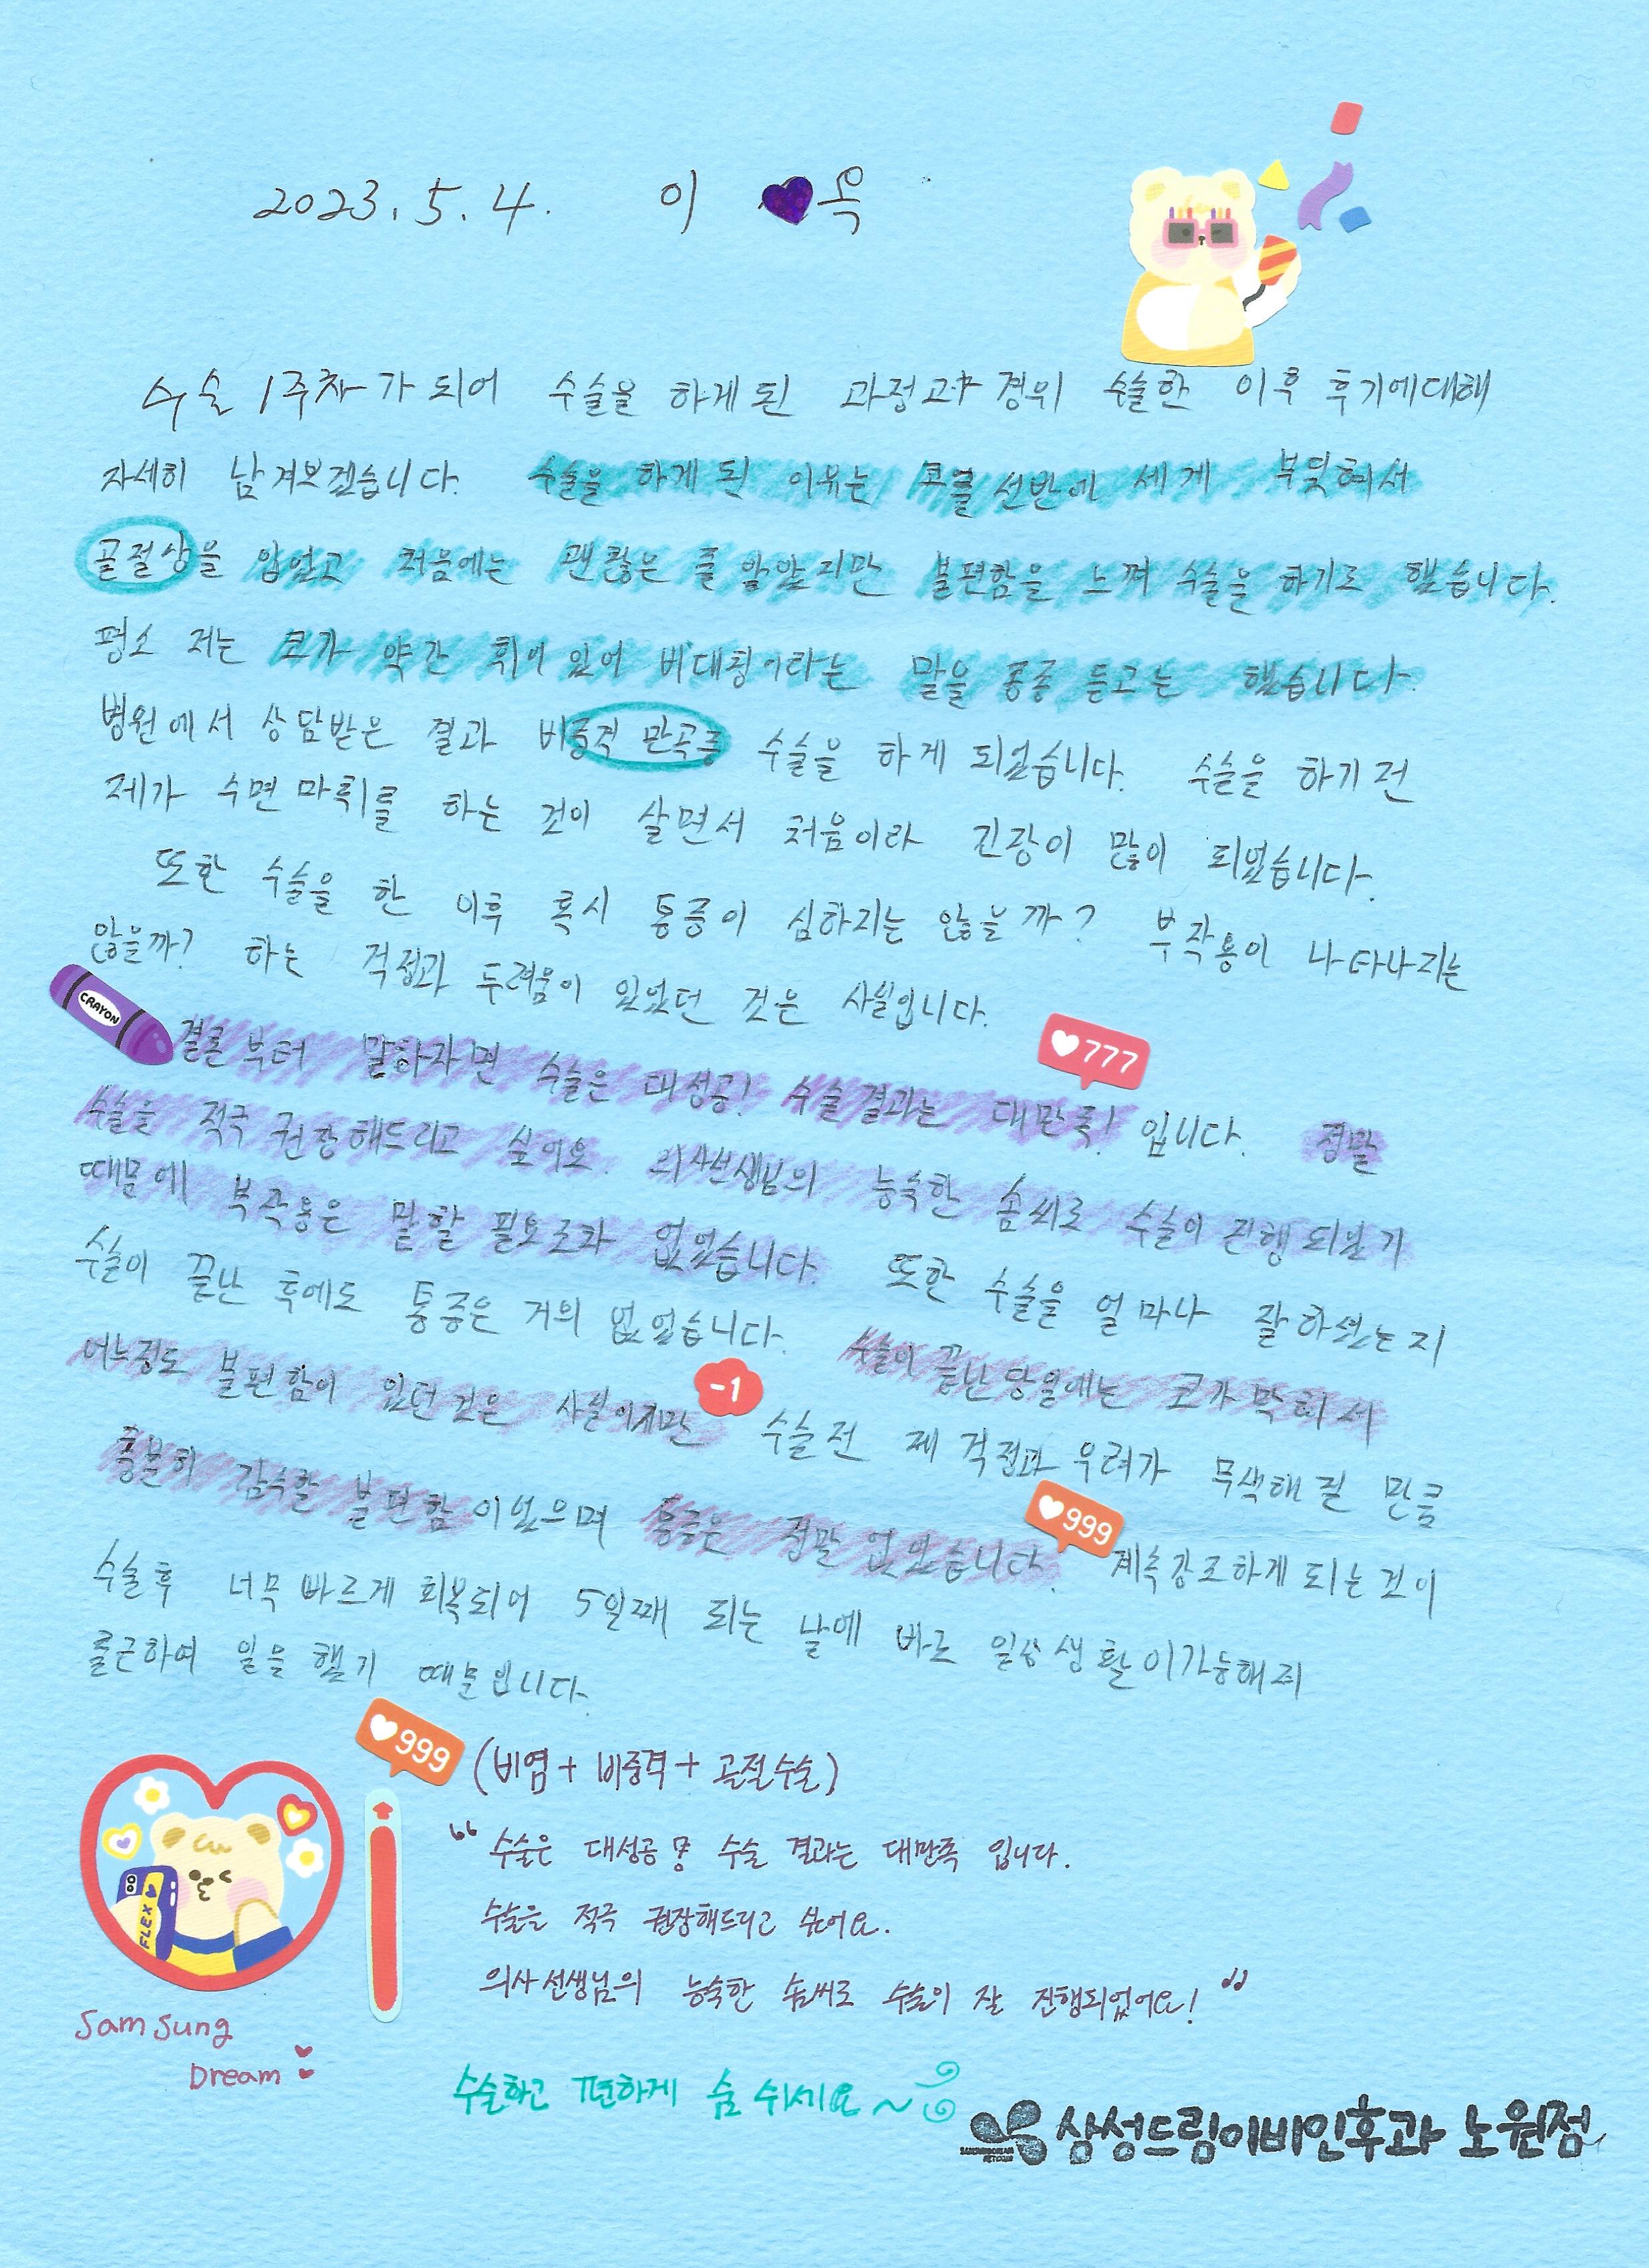 2023. 5. 4. 이 옥
수술 1주차가 되어 수술을 하게 된 과정과 경위 수술한 이후 후기에대해
자세히 남겨보겠습니다. 수술을 하게 된 이유는 코를 선반에 세게 부딪혀서
골절상을 입었고 처음에는 괜찮은 줄 알았지만 불편함을 느껴 수술을 하기로 했습니다.
평소 저는 코가 약간 휘어 있어 비대칭이라는 말을 종종 듣고는 했습니다.
병원에서 상담받은 결과 비중격 만곡증 수술을 하게 되었습니다. 수술을 하기 전
제가 수면 마취를 하는 것이 살면서 처음이라 긴장이 많이 되었습니다.
또한 수술을 한 이후 혹시 통증이 심하지는 않을까? 부작용이 나타나지는
않을까? 하는 걱정과 두려움이 있었던 것은 사실입니다.
CRAYON
777
결론부터 말하자면 수술은 대성공! 수술결과는 대만족! 입니다. 정말
수술을 적극 권장해드리고 싶어요. 의사선생님의 능숙한 솜씨로 수술이 진행되었기
때문에 부작용은 말할 필요조차 없었습니다. 또한 수술을 얼마나 잘하셨는지
수술이 끝난 후에도 통증은 거의 없었습니다. 수술이 끝난 당일에는 코가 막혀서
어느정도 불편함이 있던 것은 사실이지만 -1 수술전 제 걱정과 우려가 무색해질 만큼
충분히 감수할 불편함이었으며 통증은 정말 없었습니다. 999 계속강조하게 되는것이
수술후 너무 빠르게 회복되어 5일째 되는 날에 바로 일상생활이가능해져
출근하여 일을 했기 때문입니다.
999
(비염 + 비중격 + 골절수술)
“ 수술은 대성공 및 수술 결과는 대만족 입니다.
수술을 적극 권장해드리고 싶어요.
의사선생님의 능숙한 솜씨로 수술이 잘 진행되었어요! ”
FLEX
Samsung
Dream
수술하고 편하게 숨 쉬세요~
삼성드림이비인후과 노원점